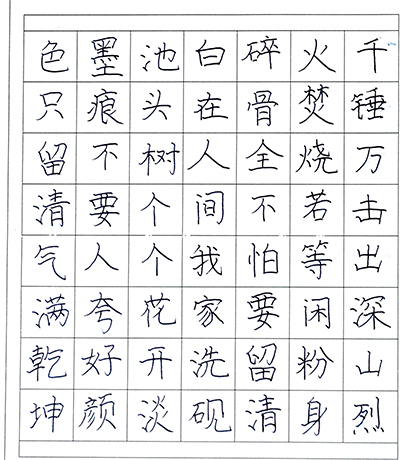 千锤万击出深山烈
火焚烧若等闲粉身
碎骨全不怕要留清
白在人间我家洗砚
池头树个个花开淡
墨痕不要人夸好颜
色只留清气满乾坤